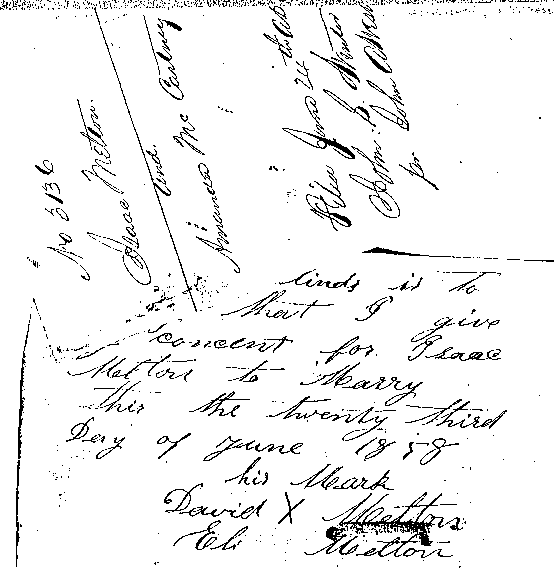 No 3136
Isaac Melton
and
Amanda Mc Cartney
Filed June 24
John
pr John
is to
that I give
concent for Isaac
Melton to Marry
this the twenty third
Day of June 1858
his Mark
David X Melton
Eli Melton